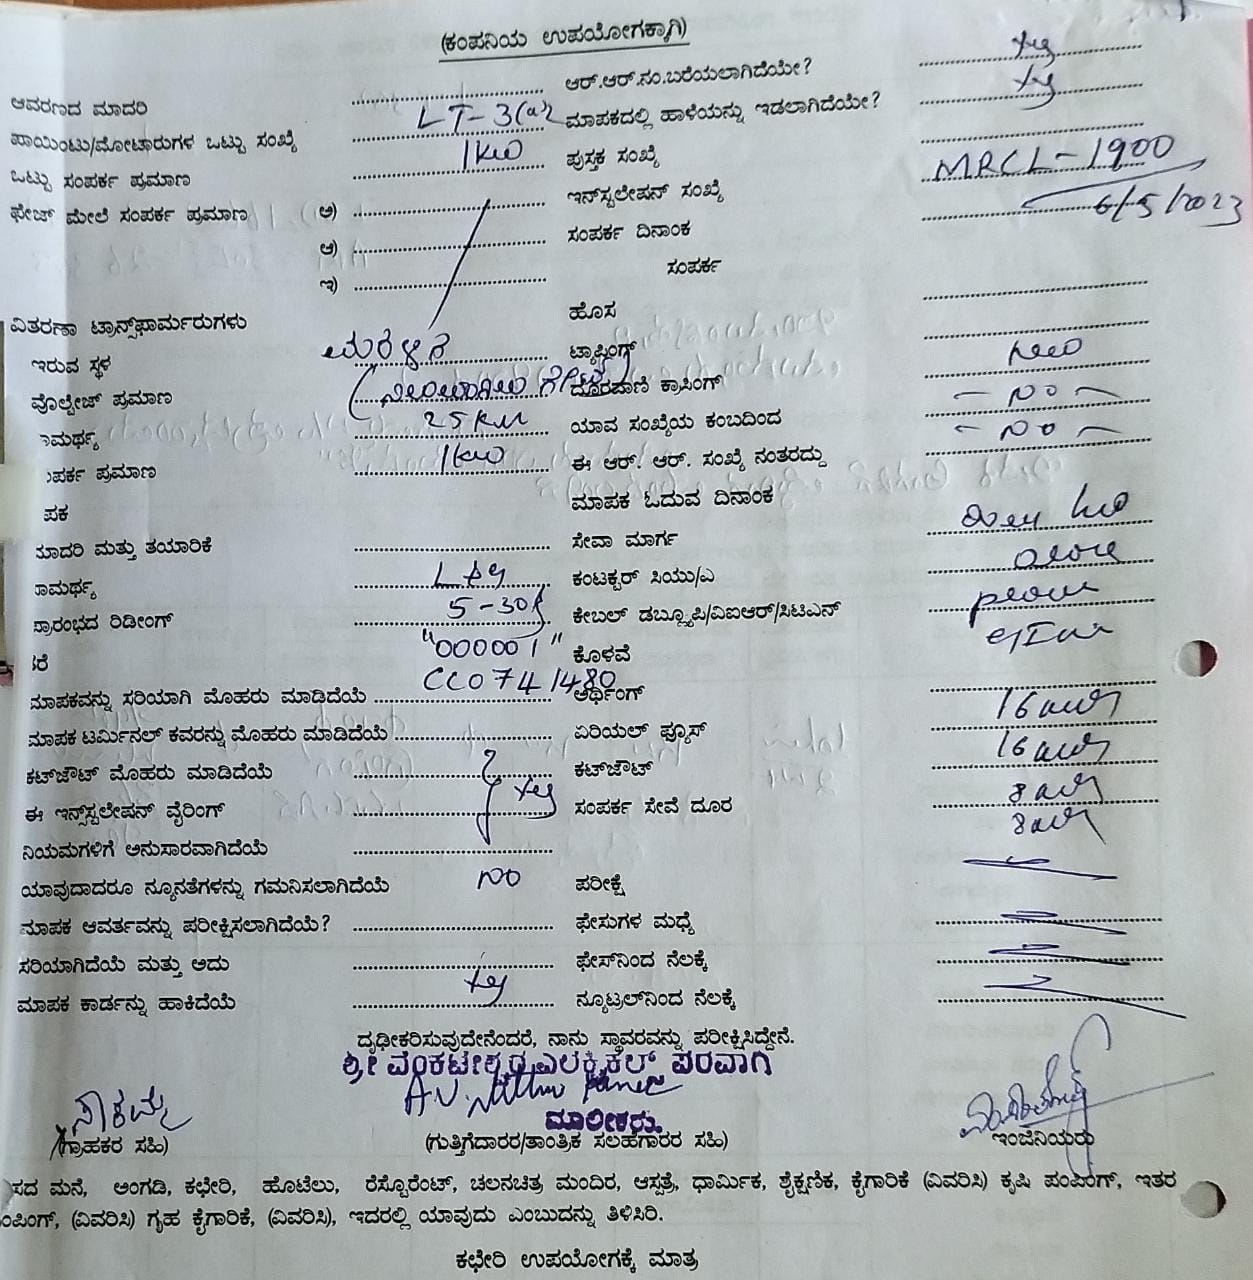 (ಕಂಪನಿಯ ಉಪಯೋಗಕ್ಕಾಗಿ)
ಆವರಣದ ಮಾದರಿ LT-3(a) ಆರ್.ಆರ್.ನಂ.ಬರೆಯಲಾಗಿದೆಯೇ? Yes
ಪಾಯಿಂಟು/ಮೋಟಾರುಗಳ ಒಟ್ಟು ಸಂಖ್ಯೆ ಮಾಪಕದಲ್ಲಿ ಹಾಳೆಯನ್ನು ಇಡಲಾಗಿದೆಯೇ? Yes
ಒಟ್ಟು ಸಂಪರ್ಕ ಪ್ರಮಾಣ 1KW ಪುಸ್ತಕ ಸಂಖ್ಯೆ
ಫೇಜ್ ಮೇಲೆ ಸಂಪರ್ಕ ಪ್ರಮಾಣ ಅ) ಇನ್‌ಸ್ಟಲೇಷನ್ ಸಂಖ್ಯೆ MRCL-1900
ಆ) ಸಂಪರ್ಕ ದಿನಾಂಕ 6/5/2023
ಇ) ಸಂಪರ್ಕ
ವಿತರಣಾ ಟ್ರಾನ್ಸ್‌ಫಾರ್ಮರುಗಳು ಹೊಸ
ಇರುವ ಸ್ಥಳ ಟ್ಯಾಪಿಂಗ್
ವೋಲ್ಟೇಜ್ ಪ್ರಮಾಣ ದೂರವಾಣಿ ಕ್ರಾಸಿಂಗ್ - NO -
ಾಮರ್ಥ್ಯ 25 ಯಾವ ಸಂಖ್ಯೆಯ ಕಂಬದಿಂದ - NO -
ಪರ್ಕ ಪ್ರಮಾಣ 1KW ಈ ಆರ್. ಆರ್. ಸಂಖ್ಯೆ ನಂತರದ್ದು
ಪಕ ಮಾಪಕ ಓದುವ ದಿನಾಂಕ
ಮಾದರಿ ಮತ್ತು ತಯಾರಿಕೆ ಸೇವಾ ಮಾರ್ಗ
ಾಮರ್ಥ್ಯ L&G ಕಂಟಕ್ಟರ್ ಸಿಯು/ಎ
ಪ್ರಾರಂಭದ ರಿಡೀಂಗ್ 5-30 ಕೇಬಲ್ ಡಬ್ಲ್ಯೂಪಿ/ವಿಐಆರ್/ಸಿಟಿಎನ್
ತರೆ "000001" ಕೊಳವೆ
ಮಾಪಕವನ್ನು ಸರಿಯಾಗಿ ಮೊಹರು ಮಾಡಿದೆಯೆ CC0741480 ಆರ್ಥಿಂಗ್
ಮಾಪಕ ಟರ್ಮಿನಲ್ ಕವರನ್ನು ಮೊಹರು ಮಾಡಿದೆಯೆ ಏರಿಯಲ್ ಫ್ಯೂಸ್
ಕಟ್‌ಔಟ್ ಮೊಹರು ಮಾಡಿದೆಯೆ ಕಟ್‌ಔಟ್
ಈ ಇನ್ಸ್‌ಸ್ಟಲೇಷನ್ ವೈರಿಂಗ್ Yes ಸಂಪರ್ಕ ಸೇವೆ ದೂರ
ನಿಯಮಗಳಿಗೆ ಅನುಸಾರವಾಗಿದೆಯೆ
ಯಾವುದಾದರೂ ನ್ಯೂನತೆಗಳನ್ನು ಗಮನಿಸಲಾಗಿದೆಯೆ NO ಪರೀಕ್ಷೆ
ಮಾಪಕ ಆವರ್ತವನ್ನು ಪರೀಕ್ಷಿಸಲಾಗಿದೆಯೆ? ಫೇಸುಗಳ ಮಧ್ಯೆ
ಸರಿಯಾಗಿದೆಯೆ ಮತ್ತು ಅದು ಫೇಸ್‌ನಿಂದ ನೆಲಕ್ಕೆ
ಮಾಪಕ ಕಾರ್ಡನ್ನು ಹಾಕಿದೆಯೆ Yes ನ್ಯೂಟ್ರಲ್‌ನಿಂದ ನೆಲಕ್ಕೆ
ದೃಢೀಕರಿಸುವುದೇನೆಂದರೆ, ನಾನು ಸ್ಥಾವರವನ್ನು ಪರೀಕ್ಷಿಸಿದ್ದೇನೆ.
ಶ್ರೀ ವೆಂಕಟೇಶ್ವರ ಎಲೆಕ್ಟ್ರಿಕಲ್ಸ್ ಪರವಾಗಿ
ಮಾಲೀಕರು.
(ಗ್ರಾಹಕರ ಸಹಿ) (ಗುತ್ತಿಗೆದಾರರ/ತಾಂತ್ರಿಕ ಸಲಹೆಗಾರರ ಸಹಿ) ಇಂಜಿನಿಯರು
ಸದ ಮನೆ, ಅಂಗಡಿ, ಕಛೇರಿ, ಹೊಟೆಲು, ರೆಸ್ಟೋರೆಂಟ್, ಚಲನಚಿತ್ರ ಮಂದಿರ, ಆಸ್ಪತ್ರೆ, ಧಾರ್ಮಿಕ, ಶೈಕ್ಷಣಿಕ, ಕೈಗಾರಿಕೆ (ವಿವರಿಸಿ) ಕೃಷಿ ಪಂಪಿಂಗ್, ಇತರ
ಂಪಿಂಗ್, (ವಿವರಿಸಿ) ಗೃಹ ಕೈಗಾರಿಕೆ, (ವಿವರಿಸಿ), ಇದರಲ್ಲಿ ಯಾವುದು ಎಂಬುದನ್ನು ತಿಳಿಸಿರಿ.
ಕಛೇರಿ ಉಪಯೋಗಕ್ಕೆ ಮಾತ್ರ